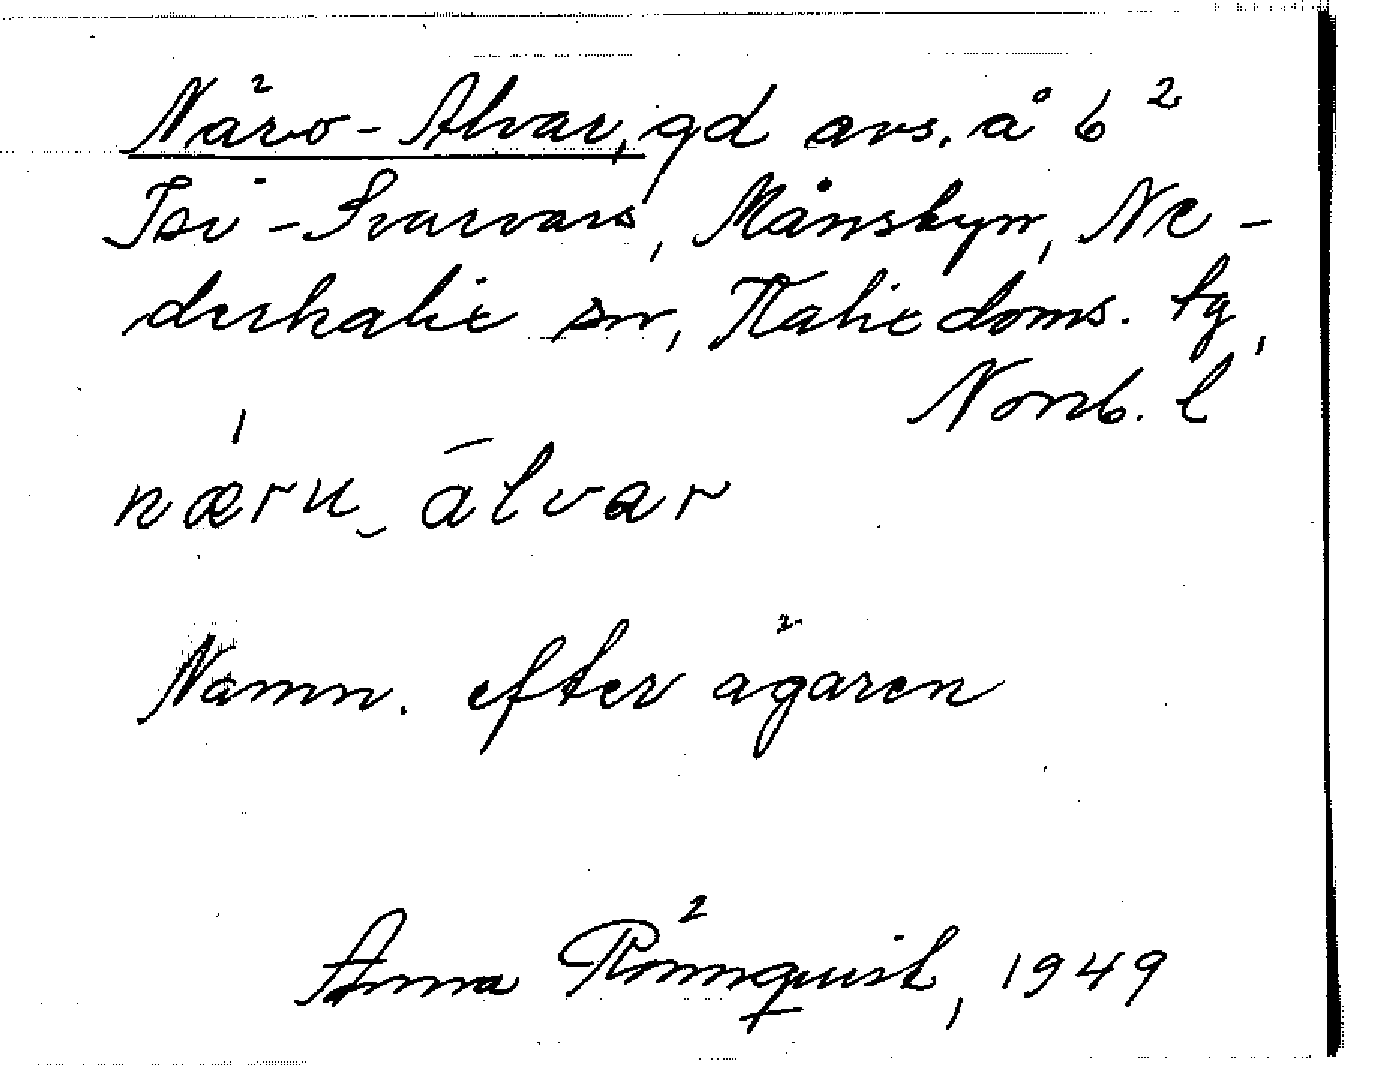 Närvo-Alvar, gd avs. å 6²
Isi-Svarvars, Månsbyn, Ne-
derkalix sn, Kalix doms. tg,
Norrb. l
næru_ālvar
Namn. efter ägaren
Anna Rönnquist, 1949